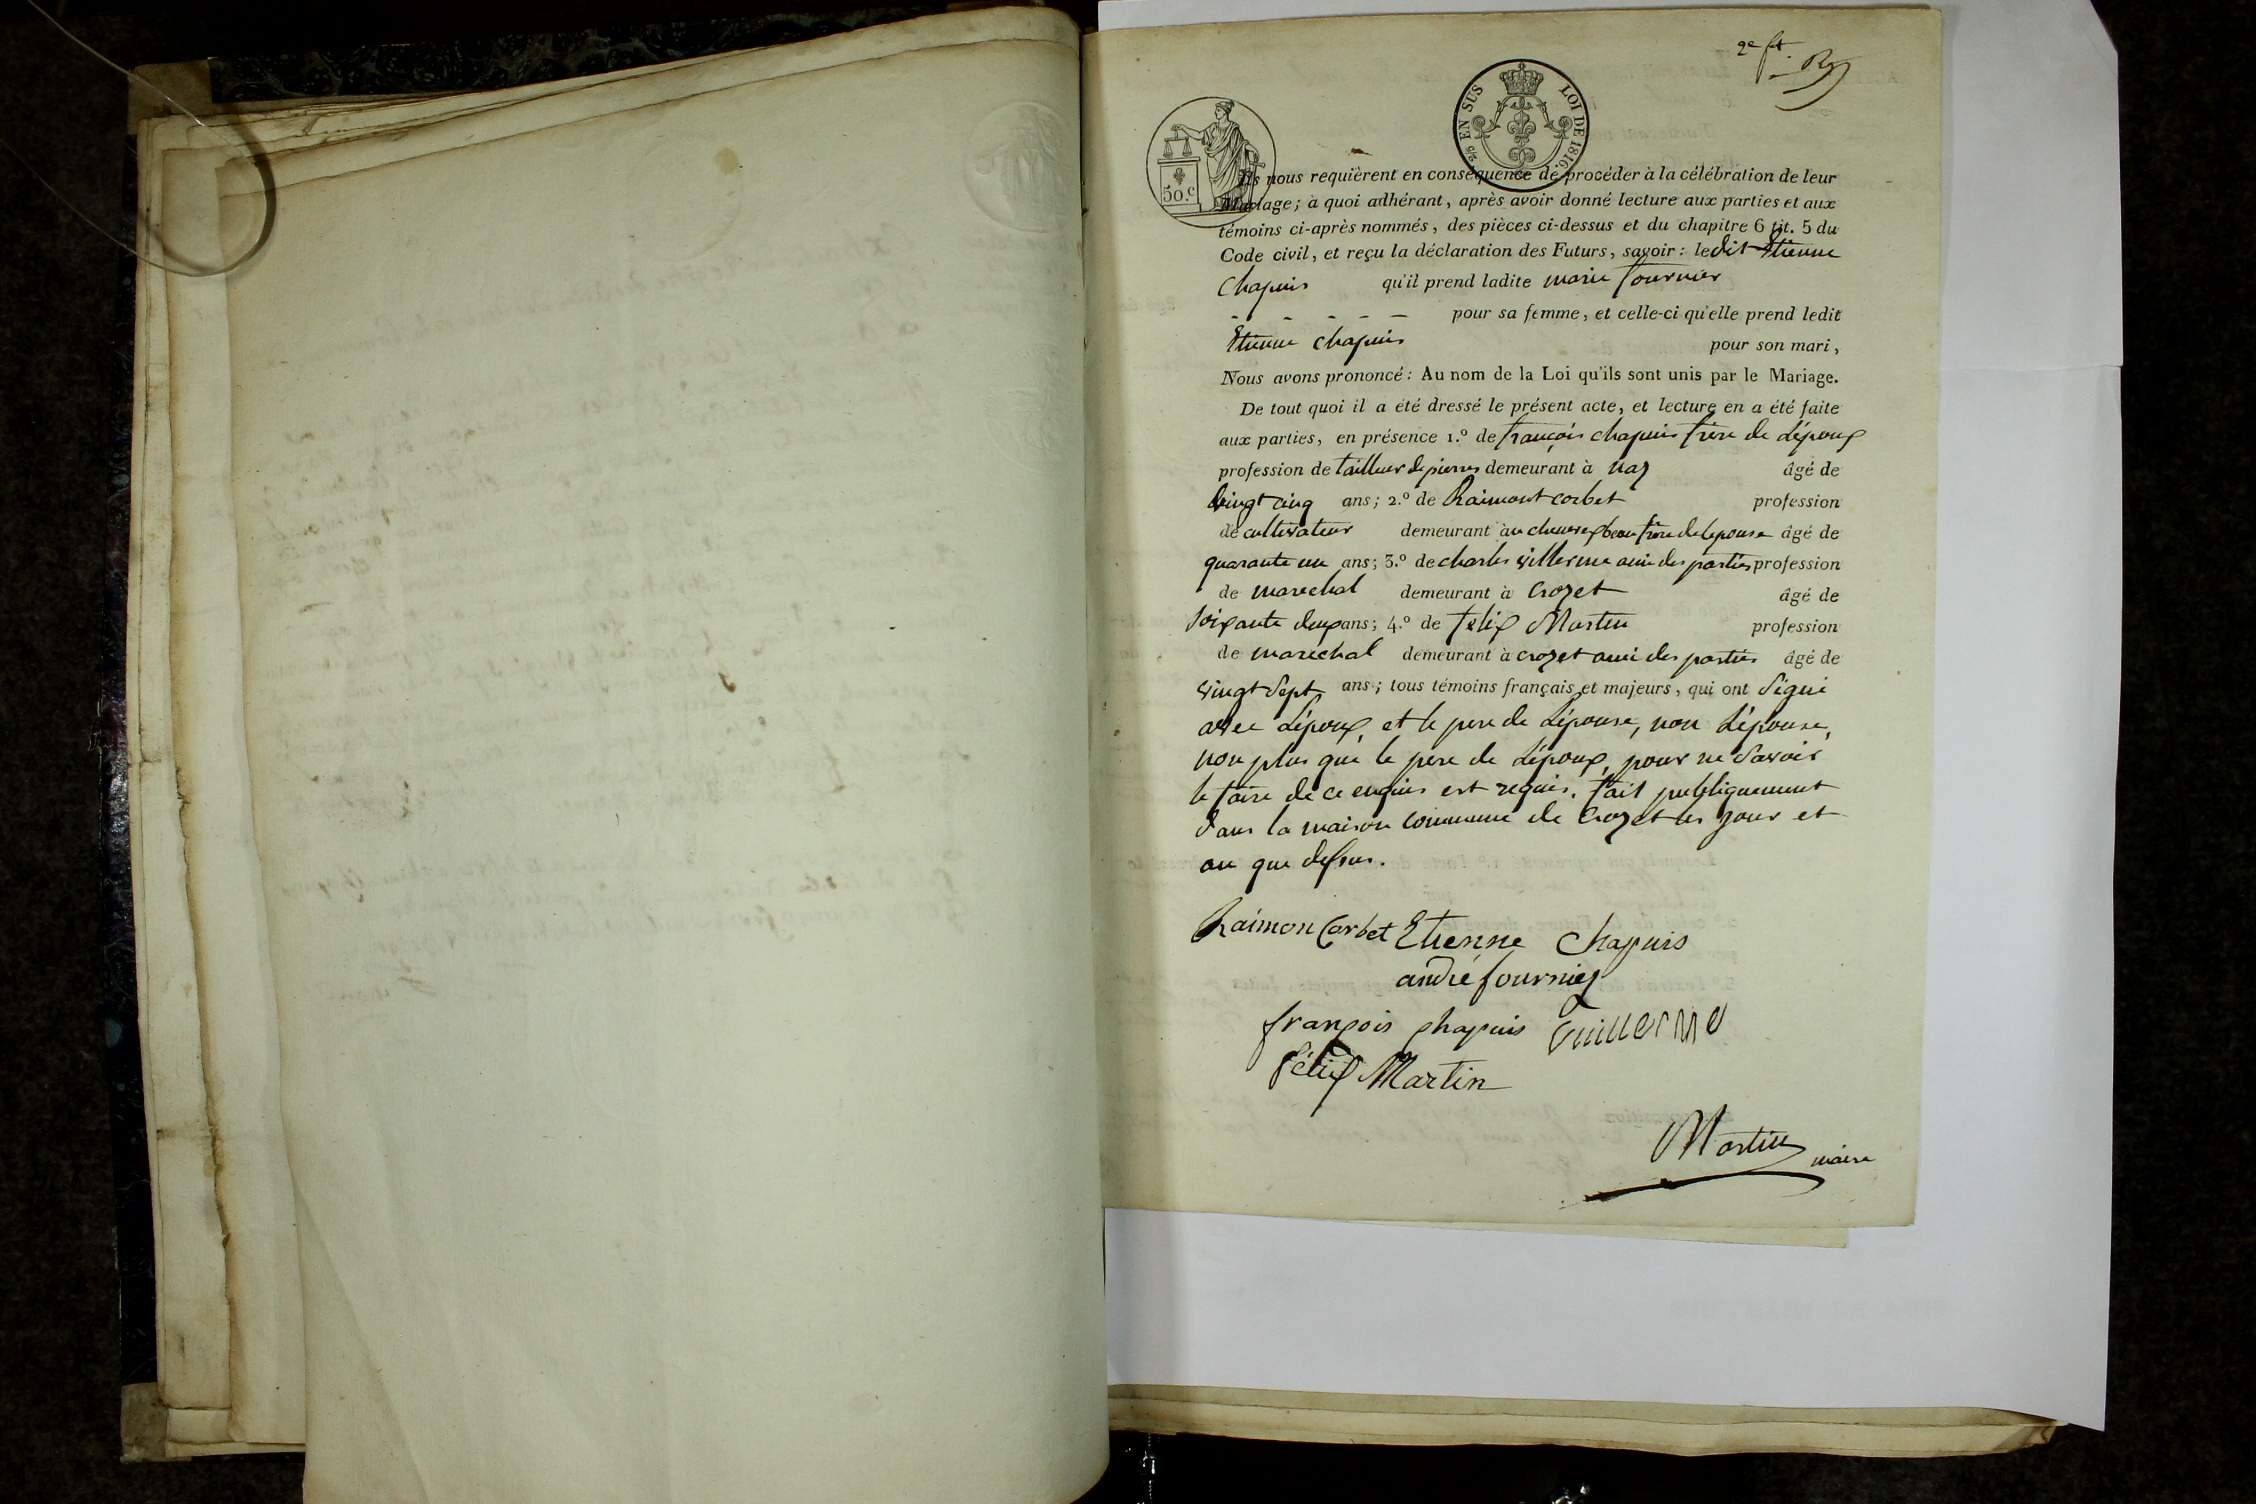 2e ft
2/5 EN SUS LOI DE 1816.
50.c
Ils nous requièrent en conséquence de procéder à la célébration de leur
Mariage; à quoi adhérant, après avoir donné lecture aux parties et aux
témoins ci-après nommés, des pièces ci-dessus et du chapitre 6 tit. 5 du
Code civil, et reçu la déclaration des Futurs, savoir: ledit Etienne
Chapuis qu'il prend ladite marie fournier
- - - - - - pour sa femme, et celle-ci qu'elle prend ledit
Etienne chapuis pour son mari,
Nous avons prononcé: Au nom de la Loi qu'ils sont unis par le Mariage.
De tout quoi il a été dressé le présent acte, et lecture en a été faite
aux parties, en présence 1.º de françois chapuis frere de Lépoux
profession de tailleur de pierres demeurant à naz âgé de
vingt cinq ans; 2.º de Raimont corbet profession
de cultivateur demeurant à beau frere de lepouse âgé de
quarante un ans; 3.º de charles villerme ami des parties profession
de marechal demeurant à crozet âgé de
Soixante deux ans; 4.º de felix Martin profession
de marechal demeurant à crozet ami des parties âgé de
vingt Sept ans; tous témoins français et majeurs, qui ont Signé
avec Lépoux, et le pere de Lépouse, non Lépouse,
non plus que le pere de Lépoux, pour ne Savoir
le faire de ce enquis est requis. fait publiquement
dans la maison commune de Crozet les jour et
an que dessus.
Raimon Corbet Etienne chapuis
andré fournier
françois chapuis Vuillerme
félix Martin
Martin maire